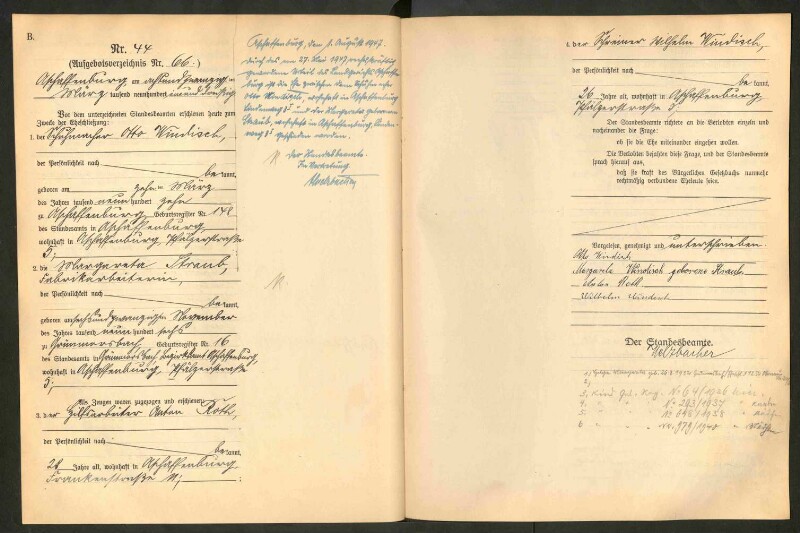 B.
Nr. 44
(Aufgebotsverzeichnis Nr. 66.)
Aschaffenburg am achtundzwanzigsten
März tausend neunhundert
Vor dem unterzeichneten Standesbeamten erschienen heute zum
Zwecke der Eheschließung:
1. der Schuhmacher Otto Windisch,
der Persönlichkeit nach
be kannt,
geboren am zehn März
des Jahres tausend neun hundert zehn
zu Aschaffenburg, Geburtsregister Nr. 148
des Standesamts in Aschaffenburg
wohnhaft in Aschaffenburg, Pfälzerstraße
5;
2. die Margareta Straub,
Fabrikarbeiterin,
der Persönlichkeit nach
be kannt,
geboren am sechsundzwanzigsten November
des Jahres tausend neun hundert sechs
zu Geburtsregister Nr. 16
des Standesamts in Bezirksamt Aschaffenburg,
wohnhaft in Aschaffenburg, Pfälzerstraße
5;
Als Zeugen waren zugezogen und erschienen:
3. der Hilfsarbeiter Anton Roth,
der Persönlichkeit nach
be kannt,
Jahre alt, wohnhaft in Aschaffenburg,
Frankenstraße 11;
Aschaffenburg, den 1. August 1947.
Durch das am 27. Mai 1947 rechtskräftig
gewordene Urteil des Landgerichts Aschaffen-
burg ist die Ehe zwischen dem Schuhmacher
Otto Windisch, wohnhaft in Aschaffenburg
und der Margareta geborene
Straub, wohnhaft in Aschaffenburg,
geschieden worden.
Der Standesbeamte.
In Vertretung
4. der Schreiner Wilhelm Windisch,
der Persönlichkeit nach
be kannt,
26 Jahre alt, wohnhaft in Aschaffenburg,
Pfälzerstraße 5.
Der Standesbeamte richtete an die Verlobten einzeln und
nacheinander die Frage:
ob sie die Ehe miteinander eingehen wollen.
Die Verlobten bejahten diese Frage, und der Standesbeamte
sprach hierauf aus,
daß sie kraft des Bürgerlichen Gesetzbuchs nunmehr
rechtmäßig verbundene Eheleute seien.
Vorgelesen, genehmigt und unterschrieben
Otto Windisch
Margareta Windisch geborene Straub
Anton Roth
Wilhelm Windisch
Der Standesbeamte.
Welzbacher
2,
3, Geb. Reg. No 64/1926 hier
4 " " No 283/1937 "
5 " " No 898/1938 "
6 " " Nr. 979/1940 "